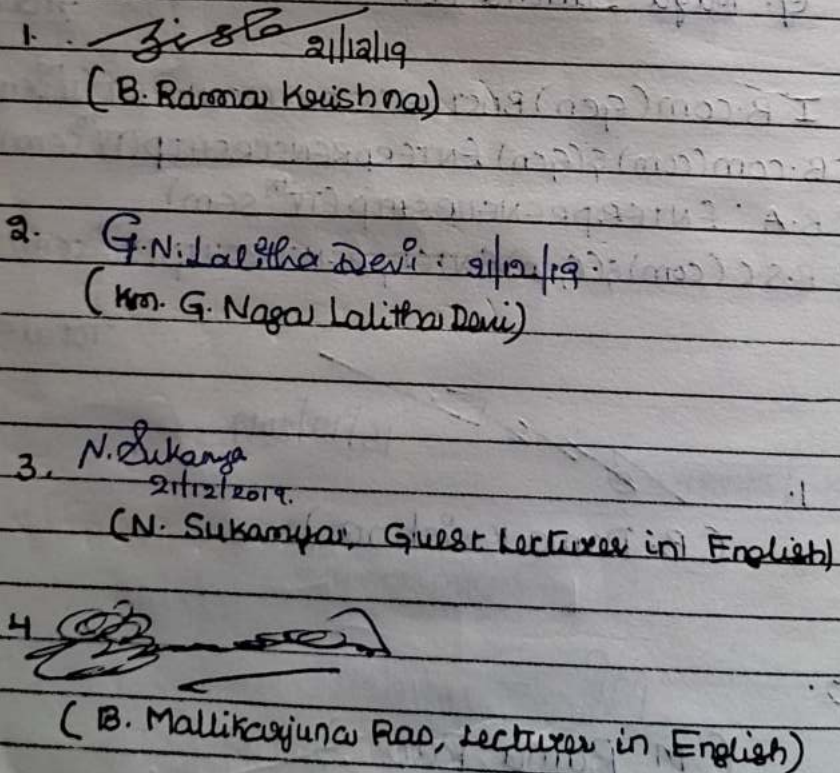 1. 21/12/19
(B. Rama Krishna)
2. G.N. Lalitha Devi: 21/12/19.
(Km. G. Naga Lalitha Devi)
3. N. Sukanya
21/12/2019.
(N. Sukanya, Guest Lecturer in English)
4
(B. Mallikarjuna Rao, Lecturer in English)